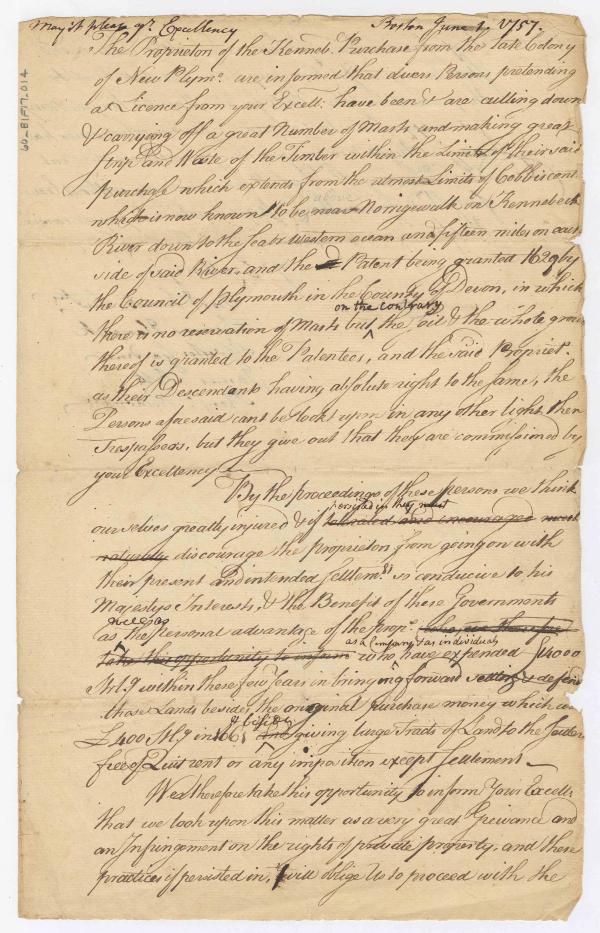 May it please yr. Excellency Boston June 1, 1757.
The Proprietors of the Kenneb. Purchase from the late Colony
of New Plymo. are informed that divers Persons pretending
a Licence from your Excell: have been & are cutting down
& carrying off a great Number of Masts and making great
Strip and Waste of the Timber within the Limits of their said
Purchase which extends from the utmost Limits of Cobbiscont
which is now known to be near Norrigewalk in Kennebeck
River down to the Sea or western ocean and fifteen miles on each
side of said River, and the Patent being granted 1629 by
the Council of Plymouth in the County of Devon, in which
on the contrary
there is no reservation of Masts but the soil & the whole grow
thereof is granted to the Patentees, and the said Propriet.
as their Descendants having absolute right to the same, the
Persons aforesaid cant be lookt upon in any other light then
Trespassers, but they give out that they are commissioned by
your Excellency
By the proceedings of these persons we think
persisted in they must
ourselves greatly injured & if tolerated and encouraged must
naturaly discourage the proprietors from going on with
their present and intended Settlemts so conducive to his
Majestys Interests, & the Benefit of these Governments
as the personal advantage of the Prop.
as a Company & as individuals
take this opportunity to inform who have expended £4000
Ster.g within these few Years in bringing forward settling & defend
those Lands besides the original purchase money which was
& besides
£400 St.g in 1661 giving large Tracts of Land to the Settlers
free of Quit rent or any imposition except settlement
We therefore take this opportunity to inform Your Excell:
that we look upon this matter as a very great Grievance and
an Infringement on the rights of private property, and these
practices if persisted in, will oblige Us to proceed with the
60-81F17-014